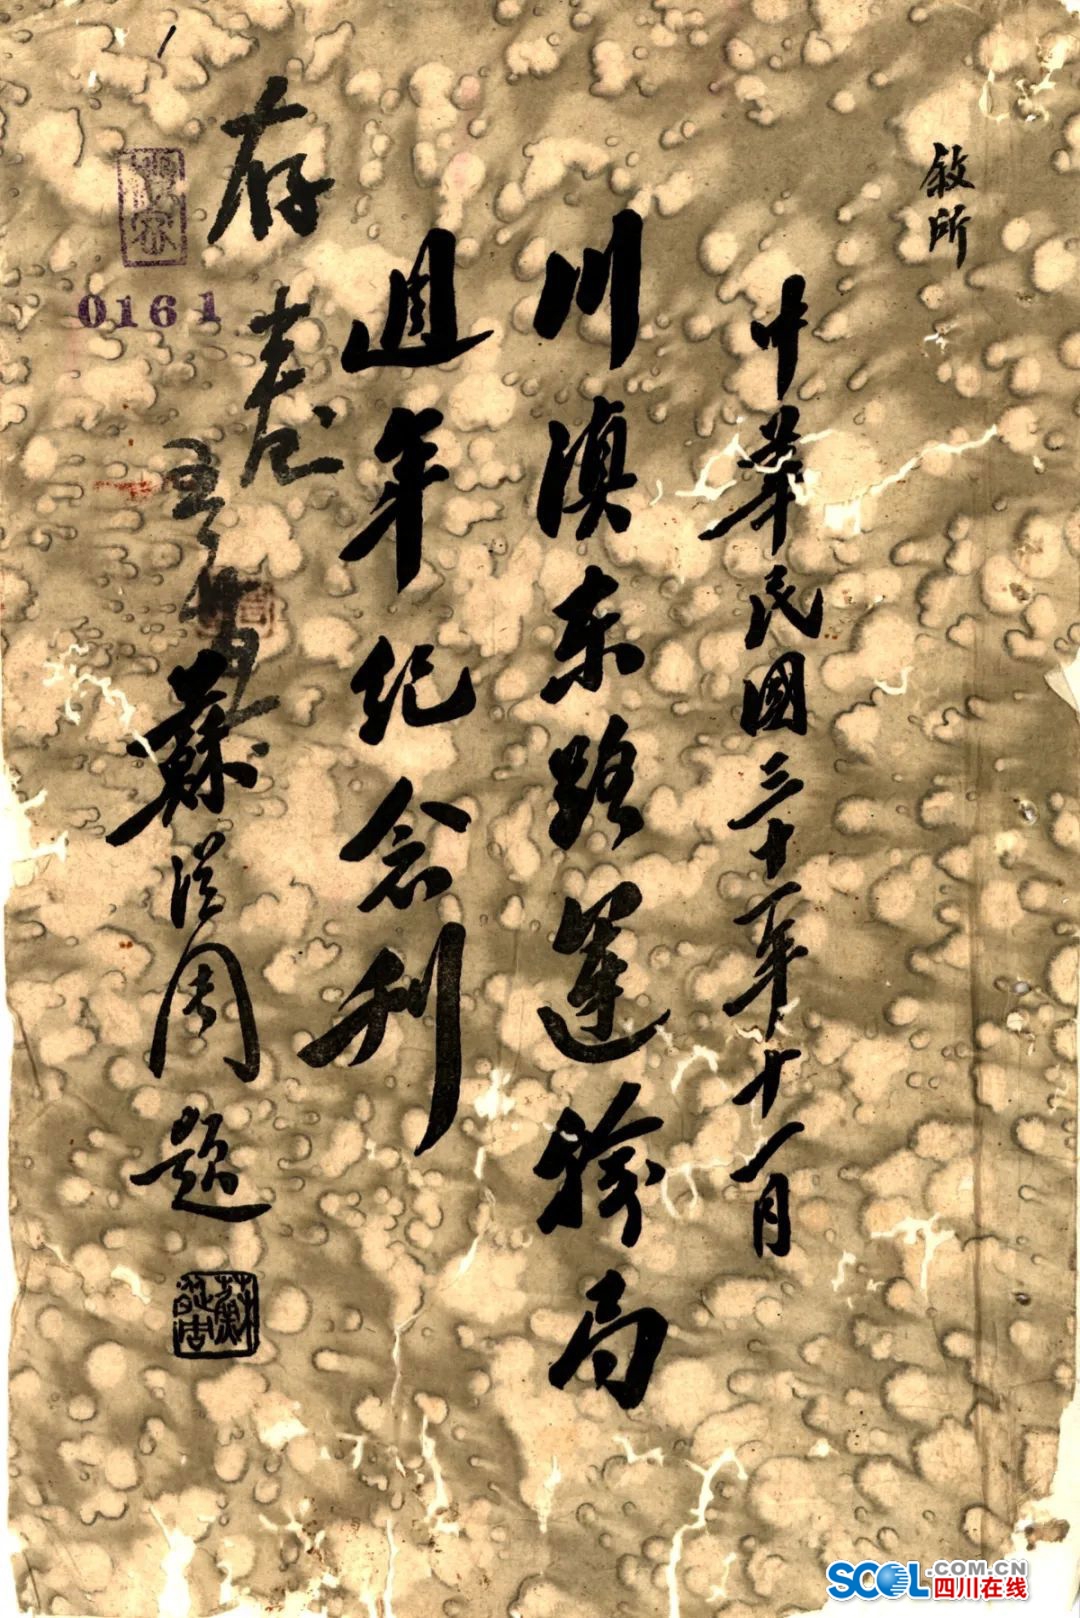 敘所
中華民國三十一年十一月
川滇东路運输局
週年纪念刊
存查
蘇從周題
0161
SCOL.COM.CN
四川在线